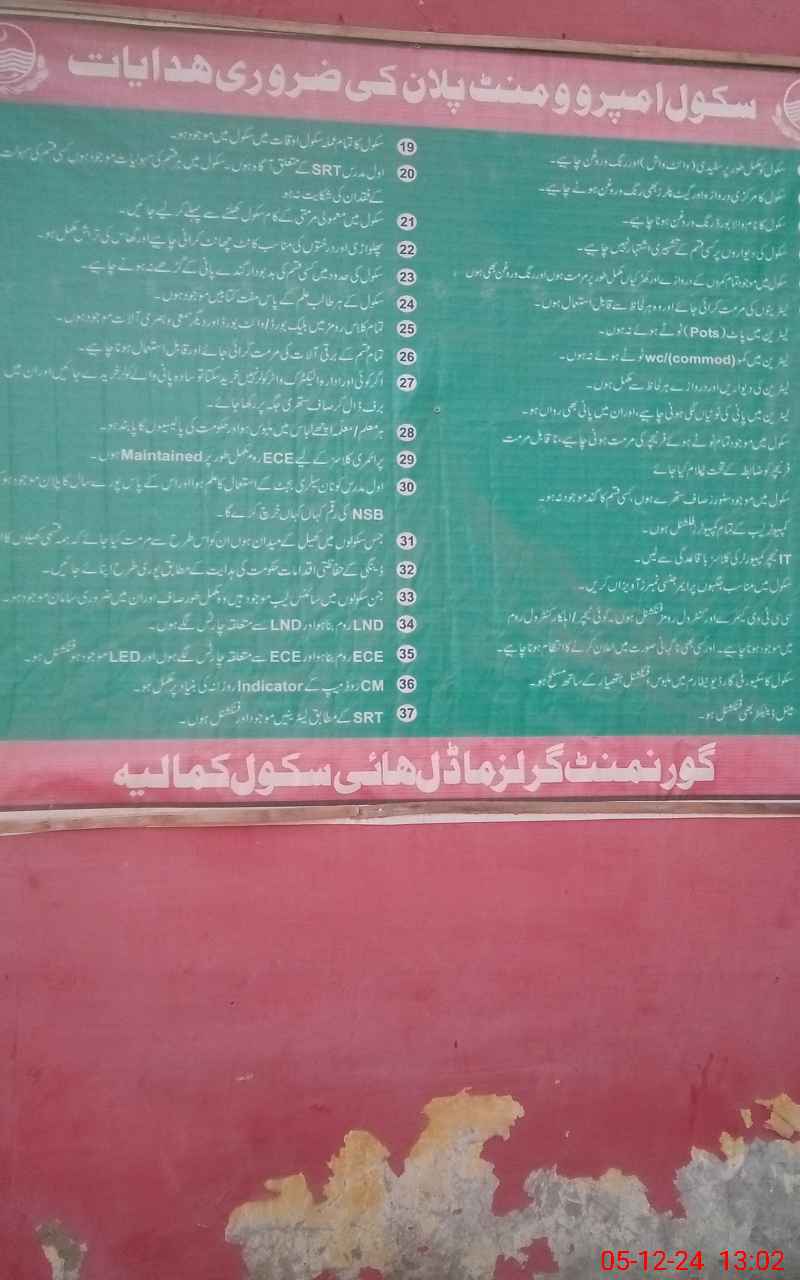 سکول امپروومنٹ پلان کی ضروری ہدایات
سکول مکمل طور پر سفیدی (وائٹ واش) اور رنگ و روغن چاہیے۔
سکول کا مرکزی دروازہ اور گیٹ پلرز بھی رنگ و روغن ہونے چاہیے۔
سکول کا نام والا بورڈ رنگ و روغن ہونا چاہیے۔
سکول کی دیواروں پر کسی قسم کے تشہیری اشتہار نہیں چاہیے۔
سکول میں موجود تمام کمروں کے دروازے اور کھڑکیاں مکمل طور پر مرمت ہوں اور رنگ و روغن بھی ہوں
لیٹرینوں کی مرمت کرائی جائے اور وہ ہر لحاظ سے قابل استعمال ہوں۔
لیٹرین میں پاٹ (Pots) ٹوٹے ہوئے نہ ہوں۔
لیٹرین میں کموڈ wc/(commod) ٹوٹے ہوئے نہ ہوں۔
لیٹرین کی دیواریں اور دروازے ہر لحاظ سے مکمل ہوں۔
لیٹرین میں پانی کی ٹوٹیاں لگی ہونی چاہیے، اور ان میں پانی بھی رواں ہو۔
سکول میں موجود تمام ٹوٹے ہوئے فرنیچر کی مرمت ہونی چاہیے، ناقابل مرمت
فرنیچر کو ضابطہ کے تحت نیلام کیا جائے
سکول میں موجود سٹورز صاف ستھرے ہوں، کسی قسم کا گند موجود نہ ہو۔
کمپیوٹر لیب کے تمام کمپیوٹر فنکشنل ہوں۔
IT ٹیچر کمپیوٹر کی کلاسز باقاعدگی سے لیں۔
سکول میں مناسب جگہوں پر ایمرجنسی نمبرز آویزاں کریں۔
سی سی ٹی وی کیمرے اور کنٹرول رومز فنکشنل ہوں۔ کوئی ٹیچر/اہلکار کنٹرول روم
میں موجود ہونا چاہیے۔ اور کسی بھی ناگہانی صورت میں اعلان کرنے کا انتظام ہونا چاہیے۔
سکول کا سکیورٹی گارڈ یونیفارم میں ملبوس فنکشنل ہتھیار کے ساتھ مسلح ہو۔
میٹل ڈیٹیکٹر بھی فنکشنل ہو۔
19 سکول کا تمام عملہ سکول اوقات میں سکول میں موجود ہو۔
20 اول مدرس SRT کے متعلق آگاہ ہوں۔ سکول میں ہر قسم کی سہولیات موجود ہوں کسی قسم کی سہولت
کے فقدان کی شکایت نہ ہو
21 سکول میں معمولی مرمتی کے کام سکول کھلنے سے پہلے کر لیے جائیں۔
22 پھلواڑی اور درختوں کی مناسب کانٹ چھانٹ کرائی چاہیے اور گھاس کی تراش مکمل ہو۔
23 سکول کی حدود میں کسی قسم کی بدبودار گندے پانی کے گڑھے نہ ہونے چاہیے۔
24 سکول کے ہر طالب علم کے پاس مفت کتابیں موجود ہوں۔
25 تمام کلاس رومز میں بلیک بورڈ/وائٹ بورڈ اور دیگر سمعی و بصری آلات موجود ہوں۔
26 تمام قسم کے برقی آلات کی مرمت کرائی جائے اور قابل استعمال ہونا چاہیے۔
27 اگر کوئی اور ادارہ الیکٹرک واٹر کولر نہیں خرید سکتا تو سادہ پانی والے کولر خریدے جائیں اور ان میں
برف ڈال کر صاف ستھری جگہ پر رکھا جائے۔
28 ہر معلم/معلمہ اچھے لباس میں ملبوس ہو اور حکومت کی پالیسیوں کا پابند ہو۔
29 پرائمری کلاسز کے لیے ECE روم مکمل طور پر Maintained ہوں۔
30 اول مدرس کو نان سیلری بجٹ کے استعمال کا علم ہو اور اس کے پاس پورے سال کا پلان موجود ہو
NSB کی رقم کہاں کہاں خرچ کرے گا۔
31 جس سکولوں میں کھیل کے میدان ہوں ان کو اس طرح سے مرمت کیا جائے کہ ہمہ قسمی کھیلوں کا
32 ڈینگی کے حفاظتی اقدامات حکومت کی ہدایت کے مطابق پوری طرح اپنائے جائیں۔
33 جن سکولوں میں سائنس لیب موجود ہیں وہ مکمل طور صاف اور ان میں ضروری سامان موجود ہو۔
34 LND روم بنا ہو اور LND سے متعلقہ چارٹس لگے ہوں۔
35 ECE روم بنا ہو اور ECE سے متعلقہ چارٹس لگے ہوں اور LED موجود ہو فنکشنل ہو۔
36 CM روڈ میپ کے Indicator روزانہ کی بنیاد پر مکمل ہو۔
37 SRT کے مطابق لیٹرینیں موجود اور فنکشنل ہوں۔
گورنمنٹ گرلز ماڈل ہائی سکول کمالیہ
05-12-24 13:02